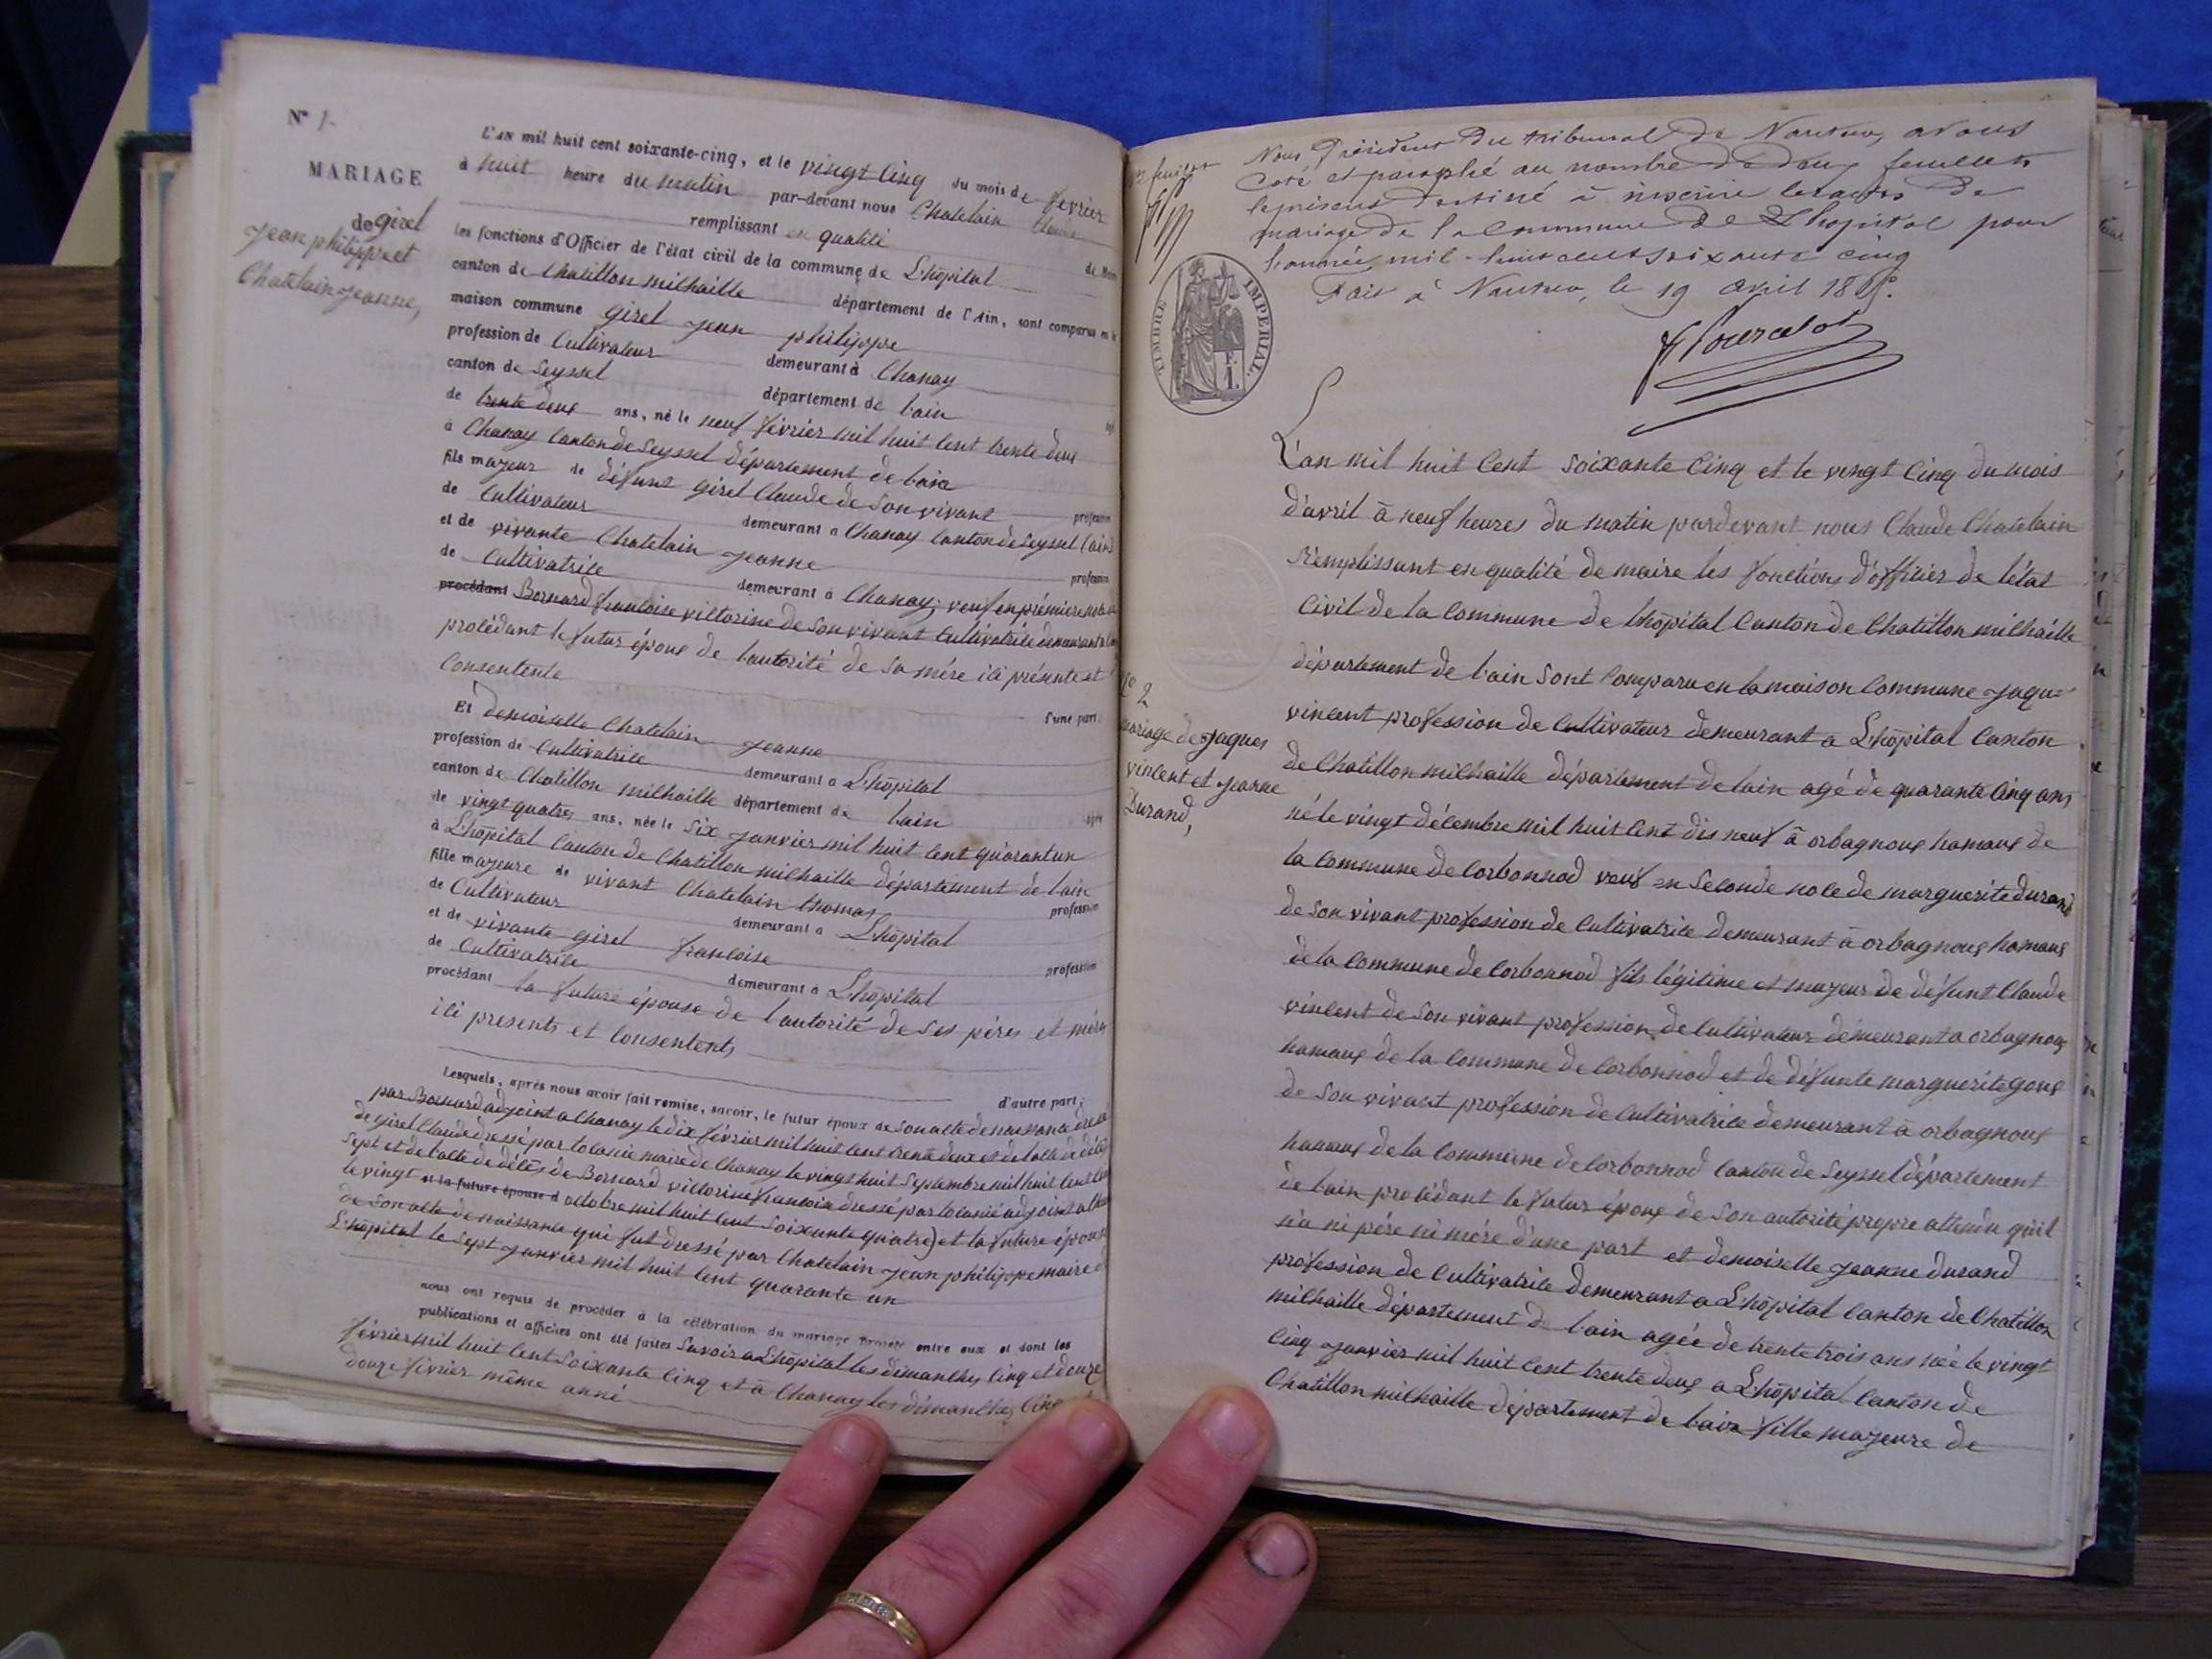 N° 1.
MARIAGE
de girel
jean philippe et
Chatelain jeanne,
L'AN mil huit cent soixante-cinq, et le vingt Cinq du mois de février
à huit heure du matin par-devant nous Chatelain Claude
remplissant en qualité de Maire
les fonctions d'Officier de l'état civil de la commune de L'hôpital
canton de Chatillon milhaille département de l'Ain, sont comparus en la
maison commune girel jean philippe
profession de Cultivateur demeurant à Chanay
canton de Seyssel département de lain âgé
de trente deux ans, né le neuf février mil huit Cent trente deux
à Chanay Canton de Seyssel département de lain
fils majeur de défunt girel Claude de Son vivant profession
de Cultivateur demeurant a Chanay Canton de Seyssel (ain)
et de vivante Chatelain jeanne profession
de Cultivatrice demeurant à Chanay, veuf en prémière noce de
procédant Bornard françoise victorine de Son vivant Cultivatrice demeurant a
procédant le futur époux de lautorité de Sa mére ici présente et
Consentente
d'une part.
Et demoiselle Chatelain jeanne
profession de Cultivatrice demeurant a L'hôpital
canton de Chatillon milhaille département de lain âgée
de vingt quatre ans, née le Six janvier mil huit Cent quarant un
à L'hôpital Canton de Chatillon milhaille département de lain
fille majeure de vivant Chatelain thomas profession
de Cultivateur demeurant a L'hôpital
et de vivante girel françoise profession
de Cultivatrice demeurant à L'hôpital
procédant la future épouse de lautorité de Ses péres et méres
ici presents et Consentents
d'autre part;
Lesquels, après nous avoir fait remise, savoir, le futur époux de Son acte de naissance dressé
par Bornard adjoint a Chanay le dix février mil huit Cent trente deux et de lacte de décés
de girel Claude dressé par tocanier maire de Chanay le vingt huit Septembre mil huit Cent
Sept et de lacte de décés de Bornard victorine francoise dressé par tocanié adjoint a
le vingt et la future épouse d octobre mil huit Cent Soixante quatre) et la future épouse
de Son acte de naissance qui fut dressé par Chatelain jean philippe maire d
L'hôpital le Sept janvier mil huit Cent quarante un
nous ont requis de procéder à la célébration du mariage projeté entre eux et dont les
publications et affiches ont été faites Savoir a L'hôpital les dimanches Cinq et douze
février mil huit Cent Soixante Cinq et à Chanay les dimanches Cinq
douze février même anné
Nous Président du tribunal de Nantua, avons
coté et paraphé au nombre de deux feuillets
le présent destiné à inscrire les actes de
mariage de la Commune de L'hopital pour
l'année mil-huit cent soixante cinq
Fait à Nantua, le 19 avril 1865.
TIMBRE IMPERIAL.
N° 2
mariage de jaques
vincent et jeanne
Durand,
L'an mil huit Cent Soixante Cinq et le vingt Cinq du mois
d'avril à neuf heures du matin pardevant nous Claude Chatelain
Remplissant en qualité de maire les fonctions d'officier de létat
Civil de la Commune de lhôpital Canton de Chatillon milhaille
département de lain Sont Comparu en la maison Commune jaque
vincent profession de Cultivateur demeurant a L'hôpital Canton
de Chatillon milhaille département de lain agé de quarante Cinq ans
né le vingt décembre mil huit Cent dis neuf à orbagnoux hamaux de
la Commune de Corbonnod veuf en Seconde noce de marguerite durand
de Son vivant profession de Cultivatrice demeurant à orbagnoux hamaux
de la Commune de Corbonnod fils légitime et majeur de défunt Claude
vincent de Son vivant profession de Cultivateur demeurant a orbagnoux
hamaux de la Commune de Corbonnod et de défunte marguerite goux
de Son vivant profession de Cultivatrice demeurant à orbagnoux
hamaux de la Commune de Corbonnod Canton de Seyssel département
de lain procédant le futur époux de Son autorité propre attendu qu'il
n'a ni pére ni mére d'une part et demoiselle jeanne durand
profession de Cultivatrice demeurant a L'hôpital Canton de Chatillon
milhaille département de lain agée de trente trois ans née le vingt
Cinq janvier mil huit Cent trente deux a L'hôpital Canton de
Chatillon milhaille département de lain fille majeure de